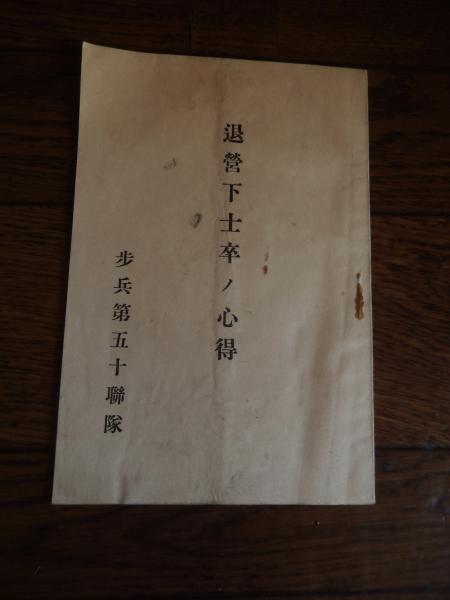 退營下士卒ノ心得
步兵第五十聯隊